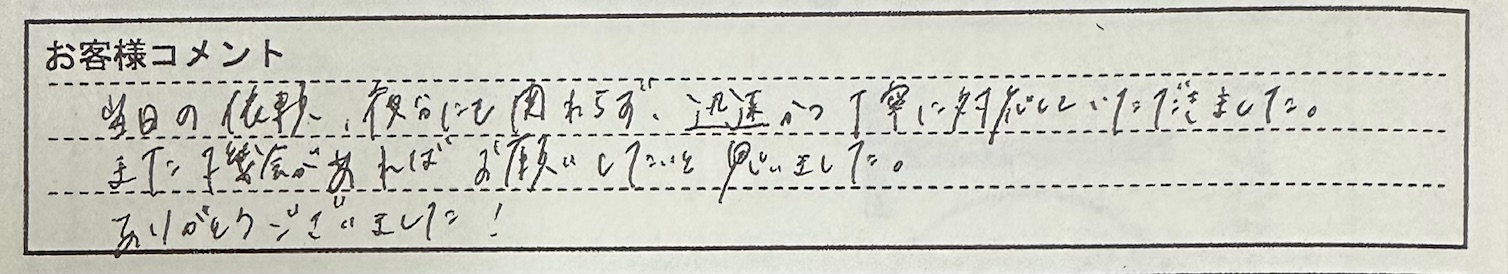 お客様コメント
当日の依頼、夜分にも関わらず、迅速かつ丁寧に対応していただきました。
また機会があればお願いしたいと思いました。
ありがとうございました!